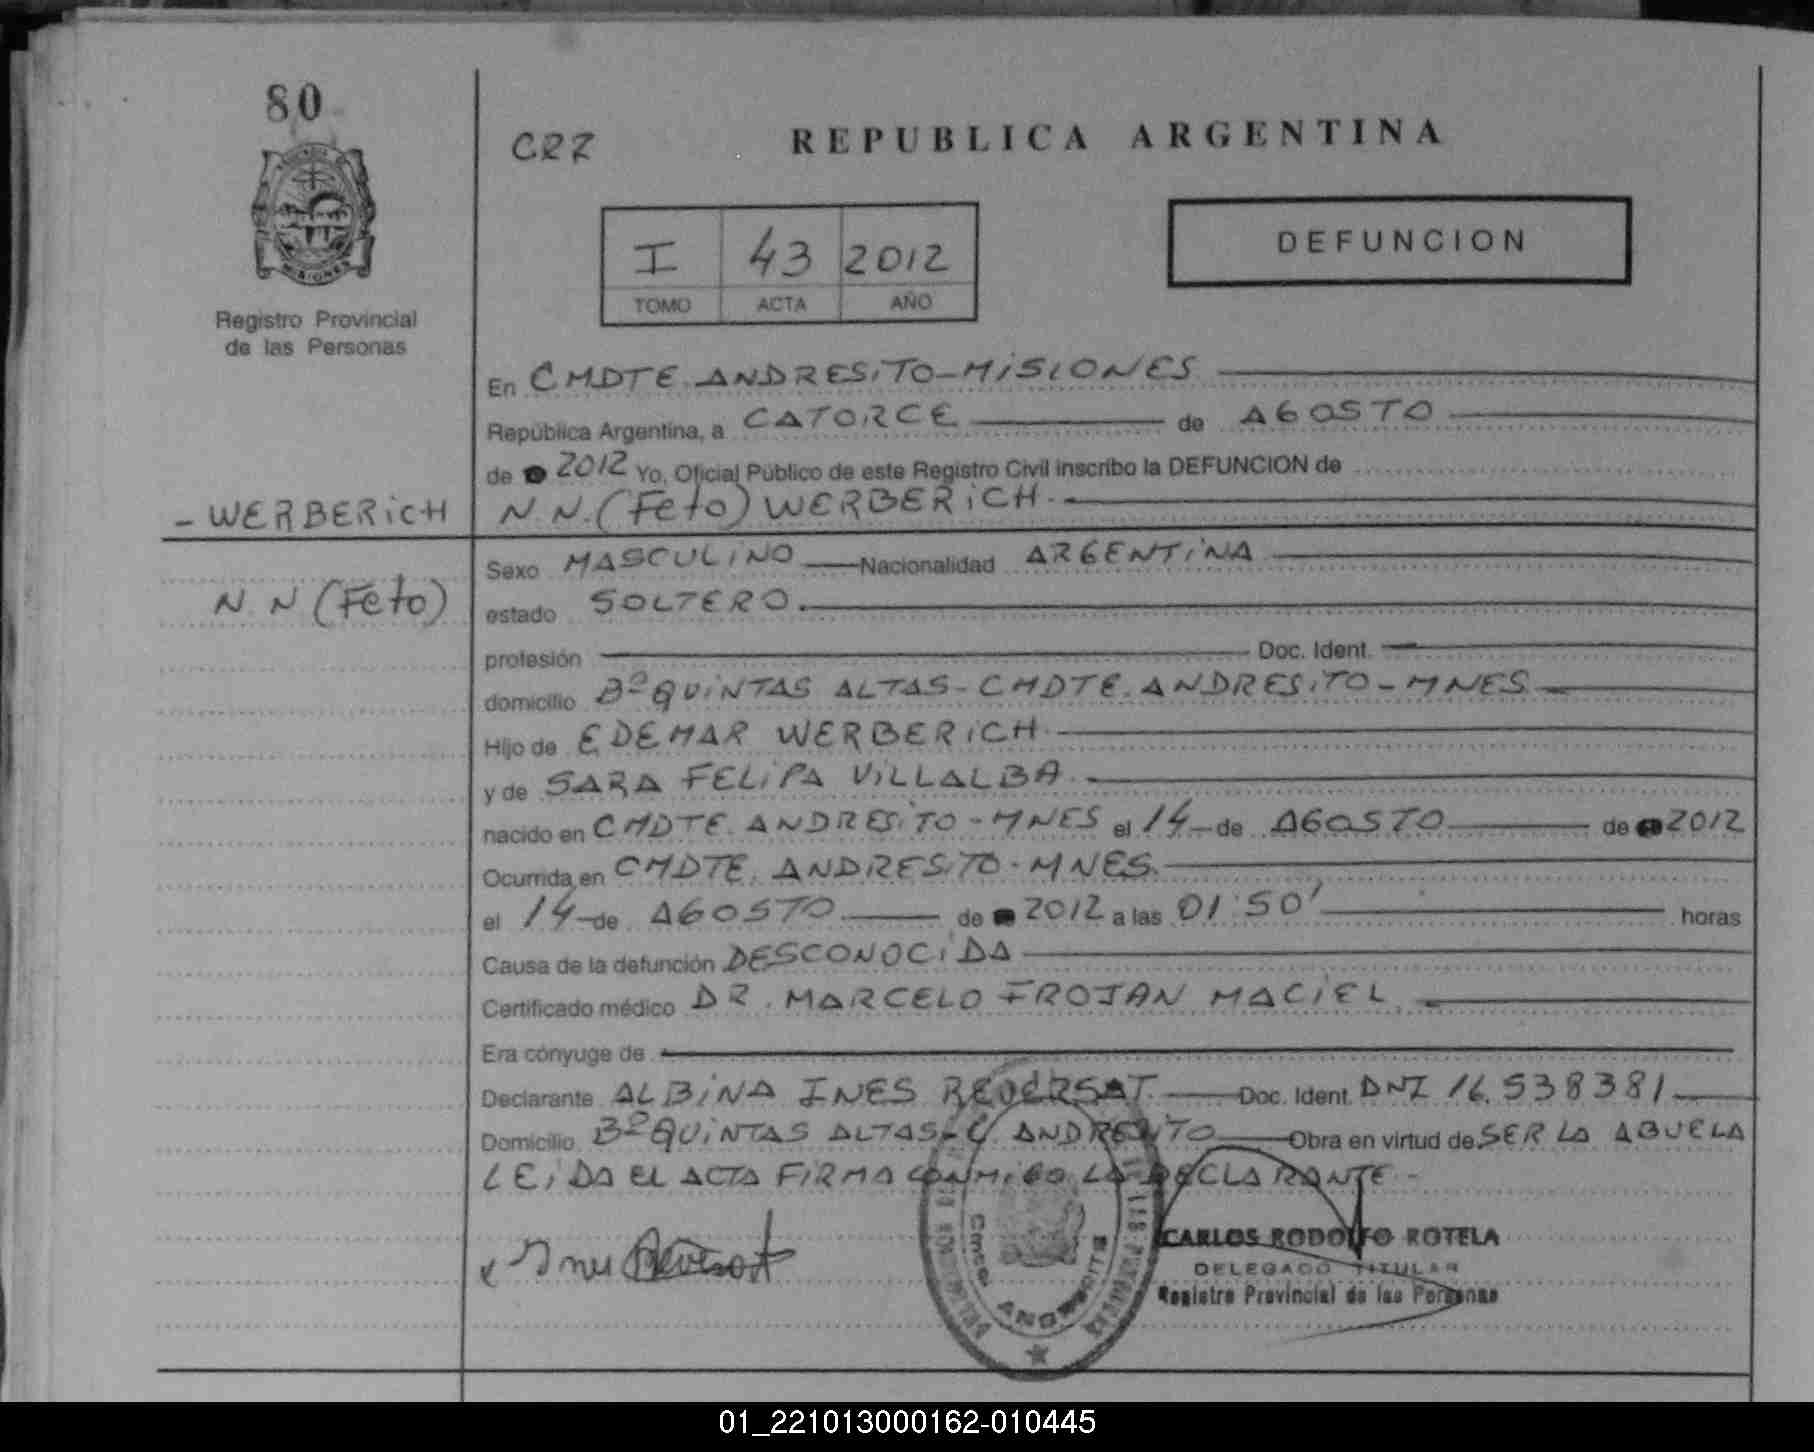 80
CRZ
REPUBLICA ARGENTINA
MISIONES
Registro Provincial
de las Personas
I 43 2012
TOMO ACTA AÑO
DEFUNCION
En CMDTE. ANDRESiTO-MiSIONES
República Argentina, a CATORCE de AGOSTO
de 2012 Yo, Oficial Público de este Registro Civil inscribo la DEFUNCION de
- WERBERiCH
N.N. (Feto) WERBERiCH.-
N.N (Feto)
Sexo MASCULiNO Nacionalidad ARGENTiNA
estado SOLTERO.
profesión Doc. Ident.
domicilio Bº QUiNTAS ALTAS-CMDTE. ANDRESiTO-MNES
Hijo de EDEMAR WERBERiCH
y de SARA FELiPA ViLLALBA.
nacido en CMDTE. ANDRESiTO-MNES el 14 de AGOSTO de 2012
Ocurrida en CMDTE. ANDRESiTO-MNES.
el 14 de AGOSTO de 2012 a las 01:50' horas
Causa de la defunción DESCONOCiDA
Certificado médico DR. MARCELO FROJAN MACiEL.
Era cónyuge de
Declarante ALBiNA INES REVERSAT. Doc. Ident. DNI 16.538381
Domicilio Bº QUiNTAS ALTAS-C. ANDRESiTO Obra en virtud de SER LA ABUELA
LEiDA EL ACTA FiRMA CONMiGO LA DECLARANTE.-
x Ines Reversat
CARLOS RODOLFO ROTELA
DELEGADO TITULAR
Registro Provincial de las Personas
01_221013000162-010445